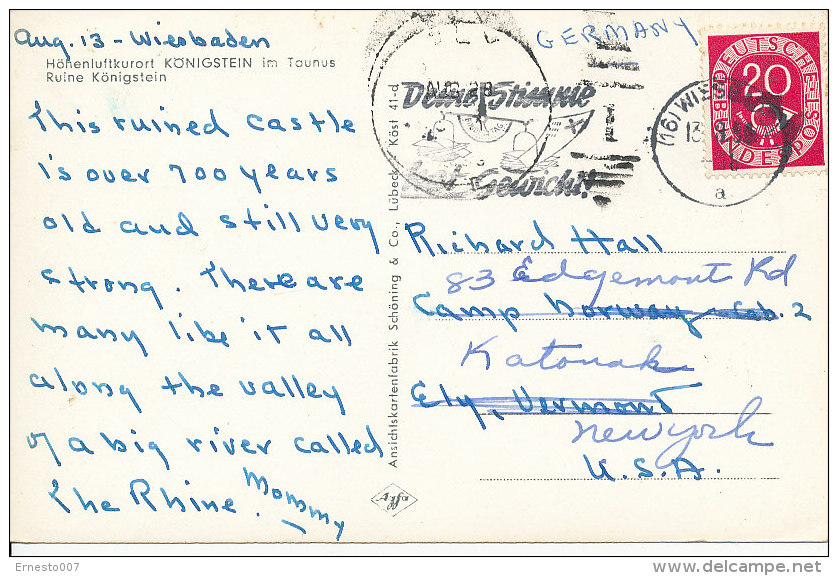 Aug. 13 - Wiesbaden
Höhenluftkurort KÖNIGSTEIN im Taunus
Ruine Königstein
This ruined castle
is over 700 years
old and still very
strong. There are
many like it all
along the valley
of a big river called
The Rhine.
Mommy
Ansichtskartenfabrik Schöning & Co., Lübeck
Köst 41-d
Agfa
GERMANY
Deine Stimme
hat Gewicht!
DEUTSCHE BUNDESPOST
20
(16) WIESB
13.
a
Richard Hall
83 Edgemont Rd
Camp Norway Cab. 2
Katonah
Ely, Vermont
New York
U.S.A.
Ernesto007